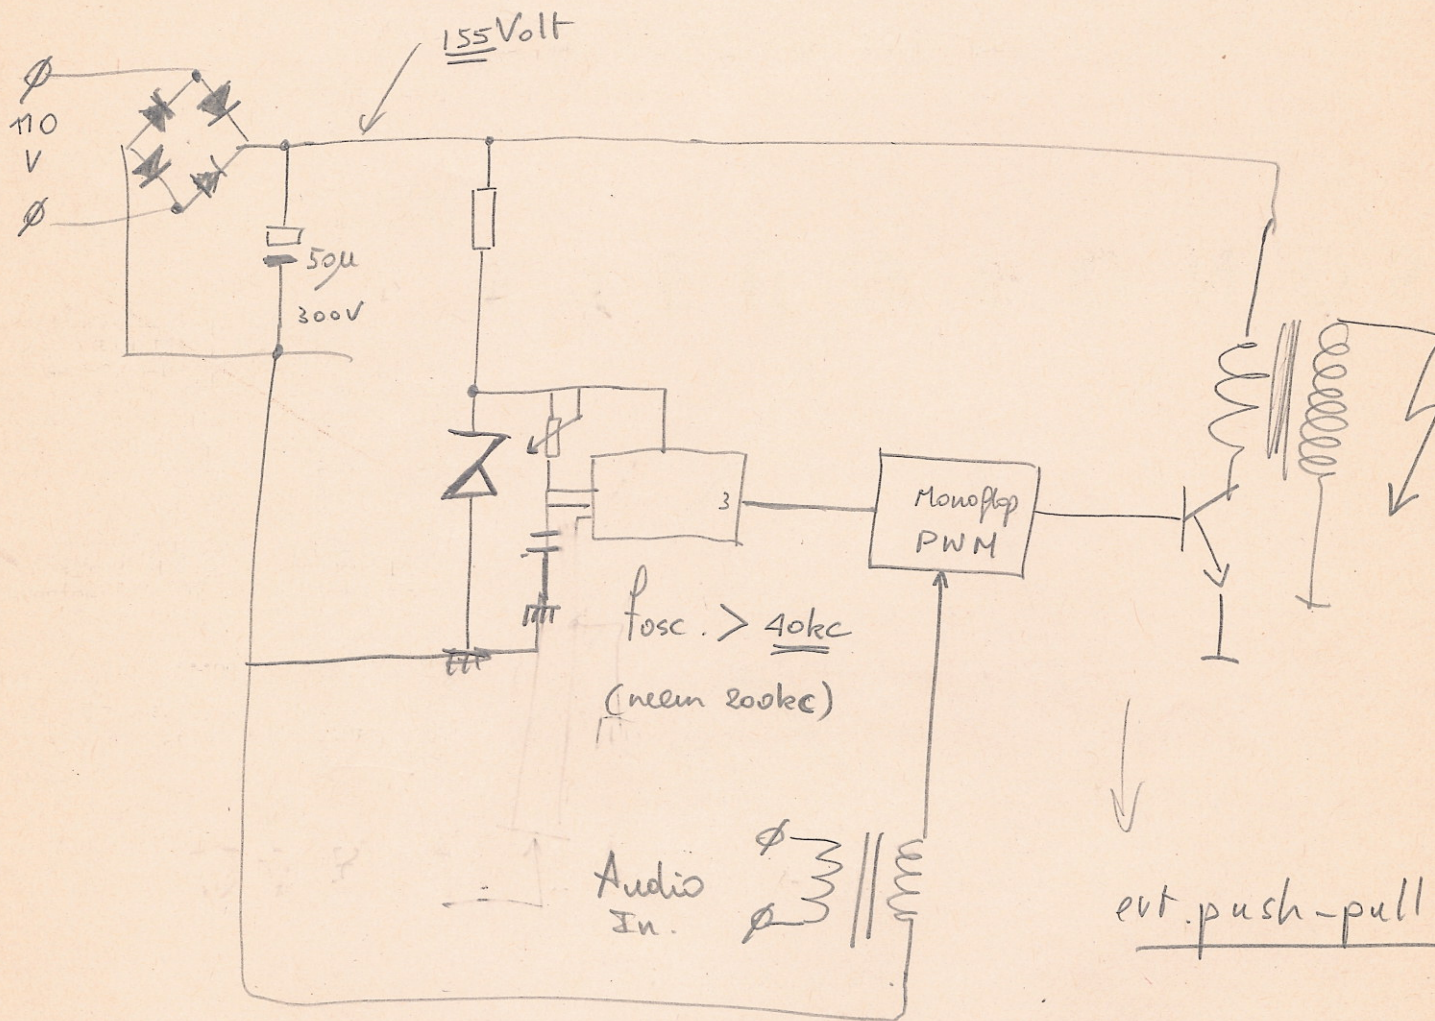 155 Volt
110
V
50µ
300V
3
Monoflop
PWM
fosc. > 40kc
(neem 200kc)
Audio
In.
evt. push-pull